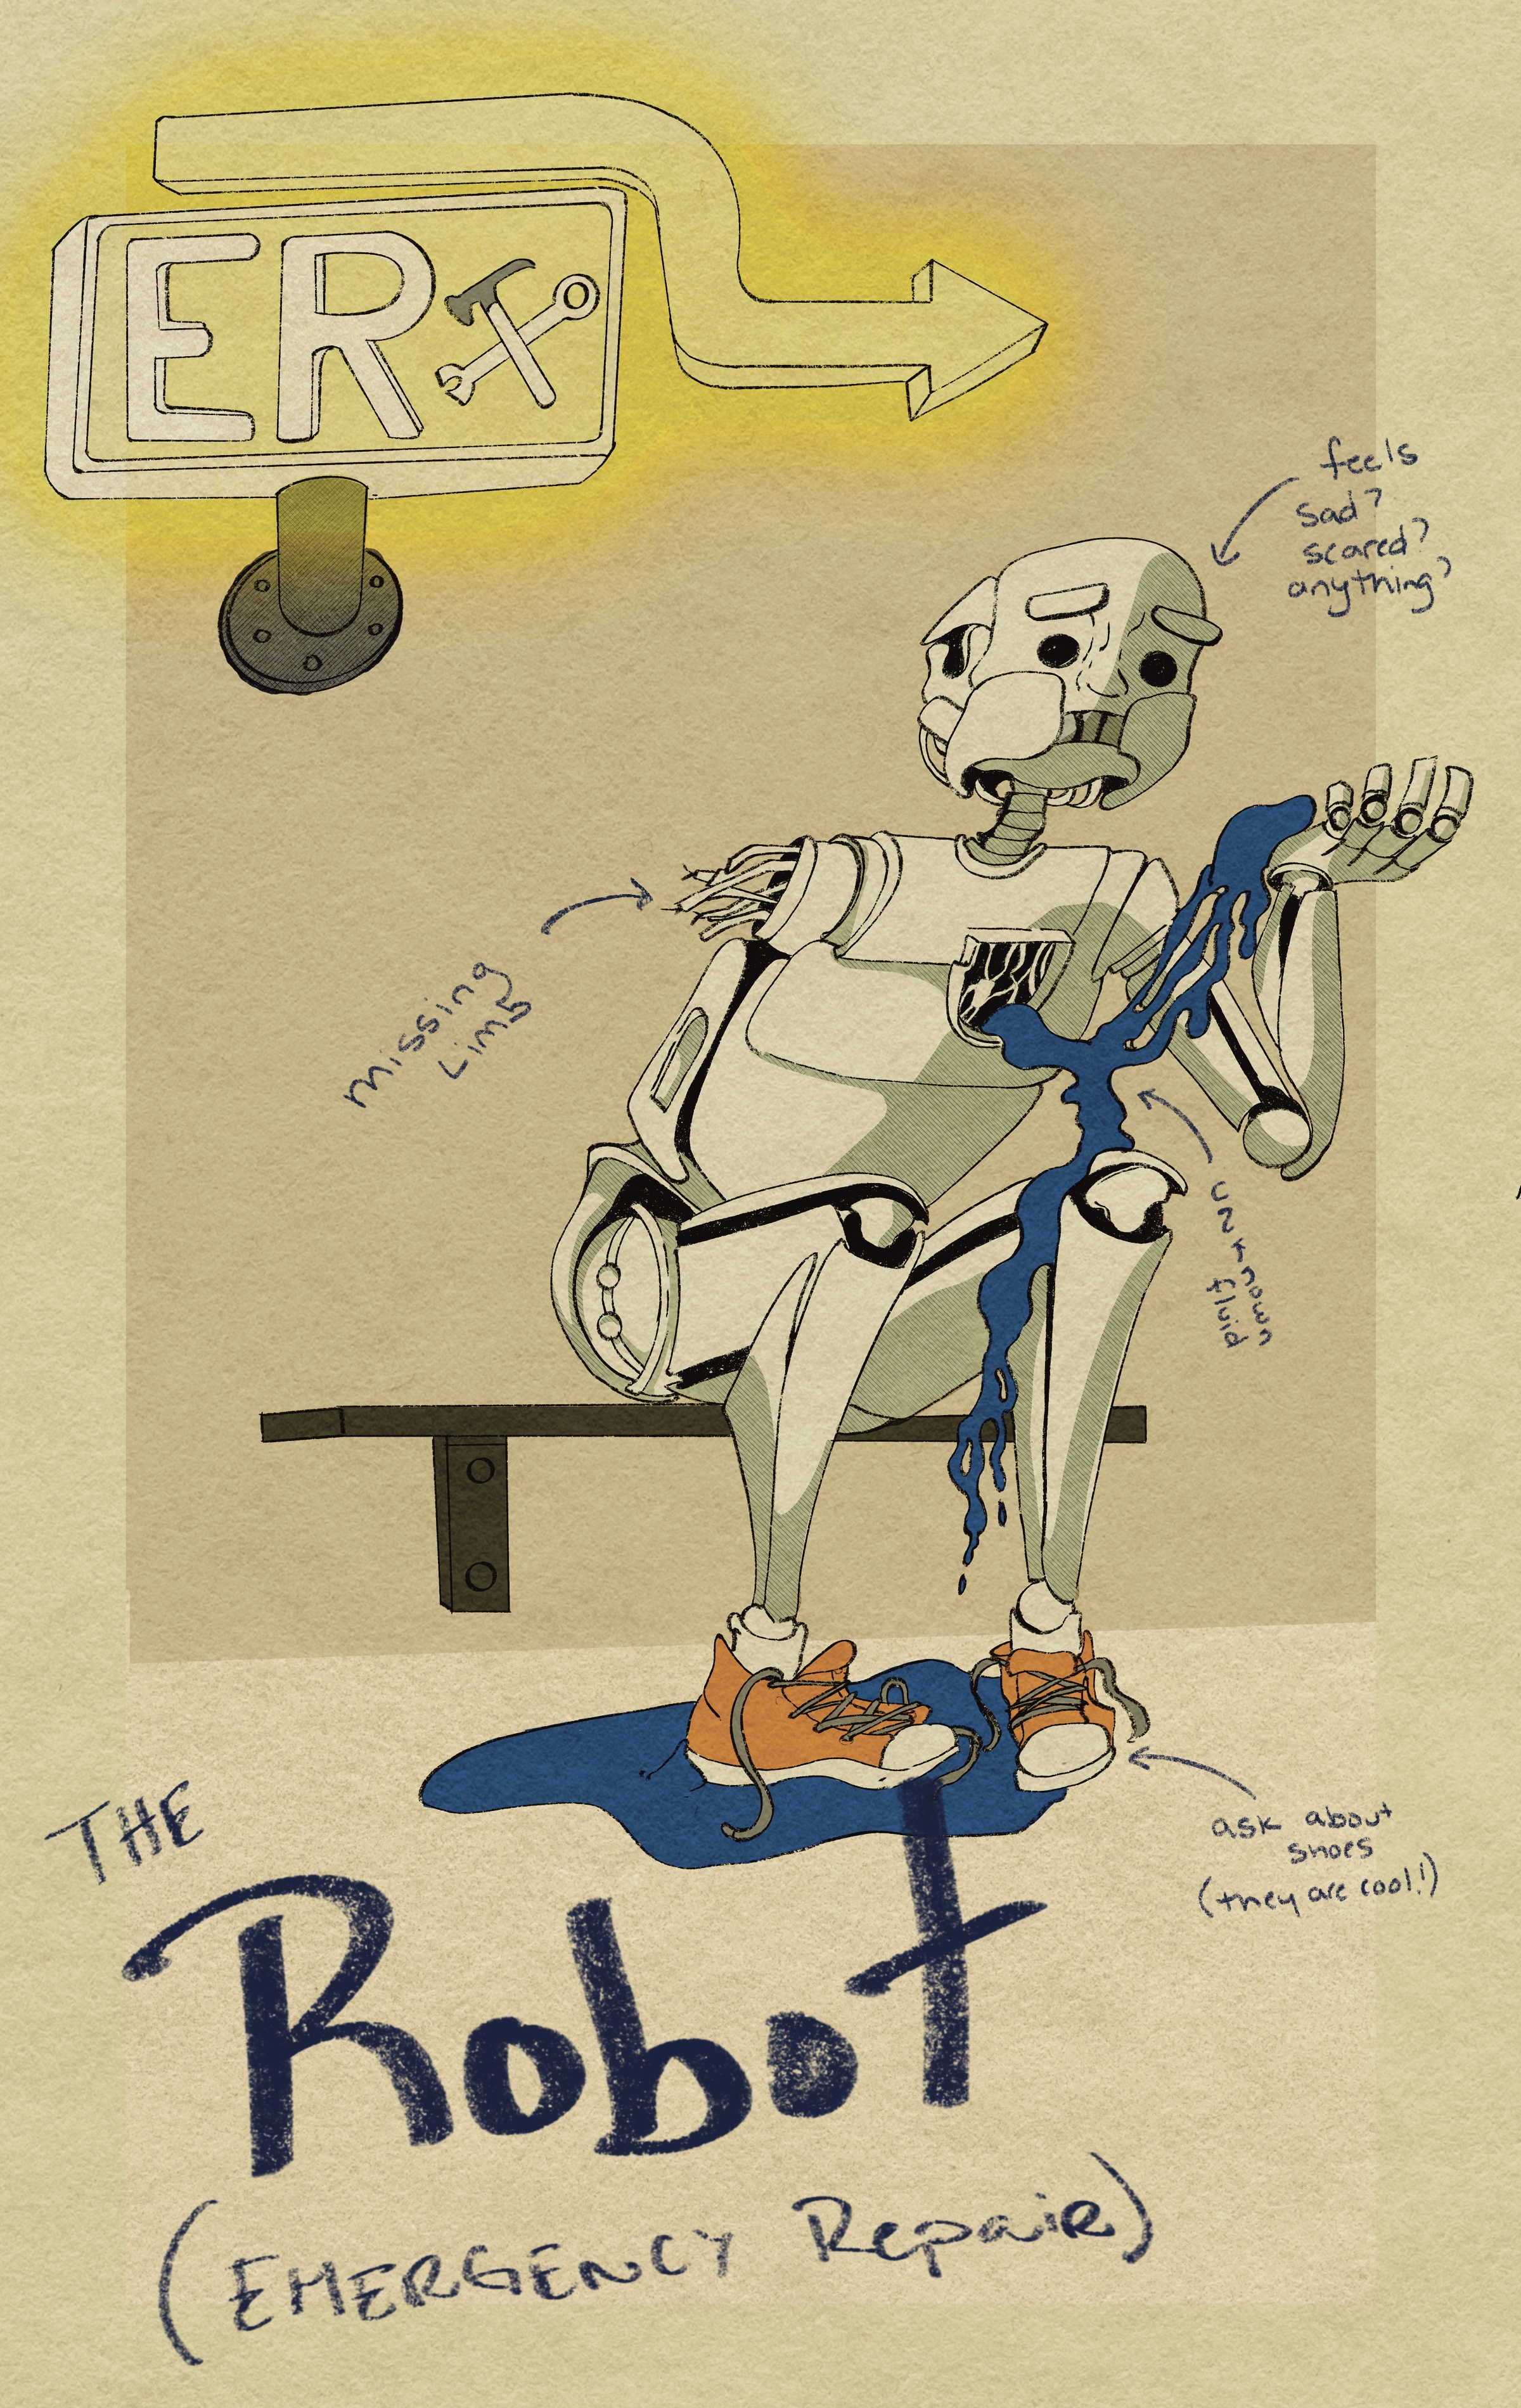 ER
feels
sad?
scared?
anything?
missing
Limb
unknown
fluid
ask about
shoes
(they are cool!)
THE
Robot
(EMERGENCY Repair)